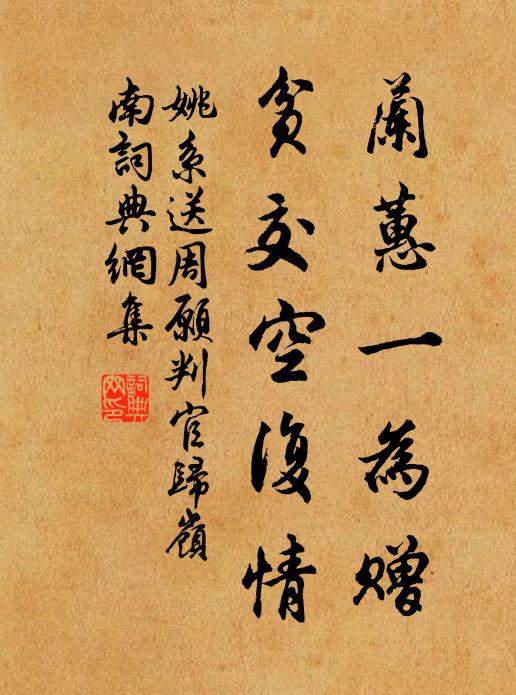 蘭蕙一為贈
貧交空復情
姚系送周願判官歸嶺
南詞典網集
詞典网印